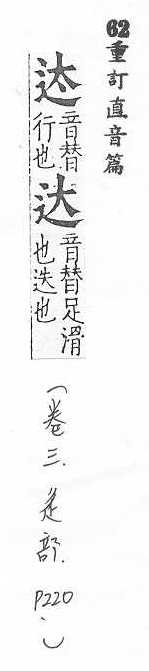 62重訂直音篇
迏音替行也达音替足滑也迭也
(卷三.辵部.P220.)